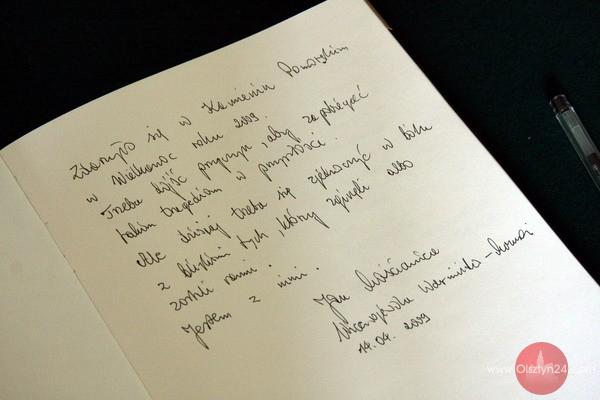 Zdarzyło się w Kamieniu Pomorskim
w Wielkanoc roku 2009.
Trzeba dojść przyczyn, aby zapobiegać
takim tragediom w przyszłości.
Ale dzisiaj trzeba się zjednoczyć w bólu
z bliskimi tych, którzy zginęli albo
zostali ranni.
Jestem z nimi.
Jan Maścianica
Wicewojewoda Warmińsko-Mazu
14.04. 2009
www.Olsztyn24.com